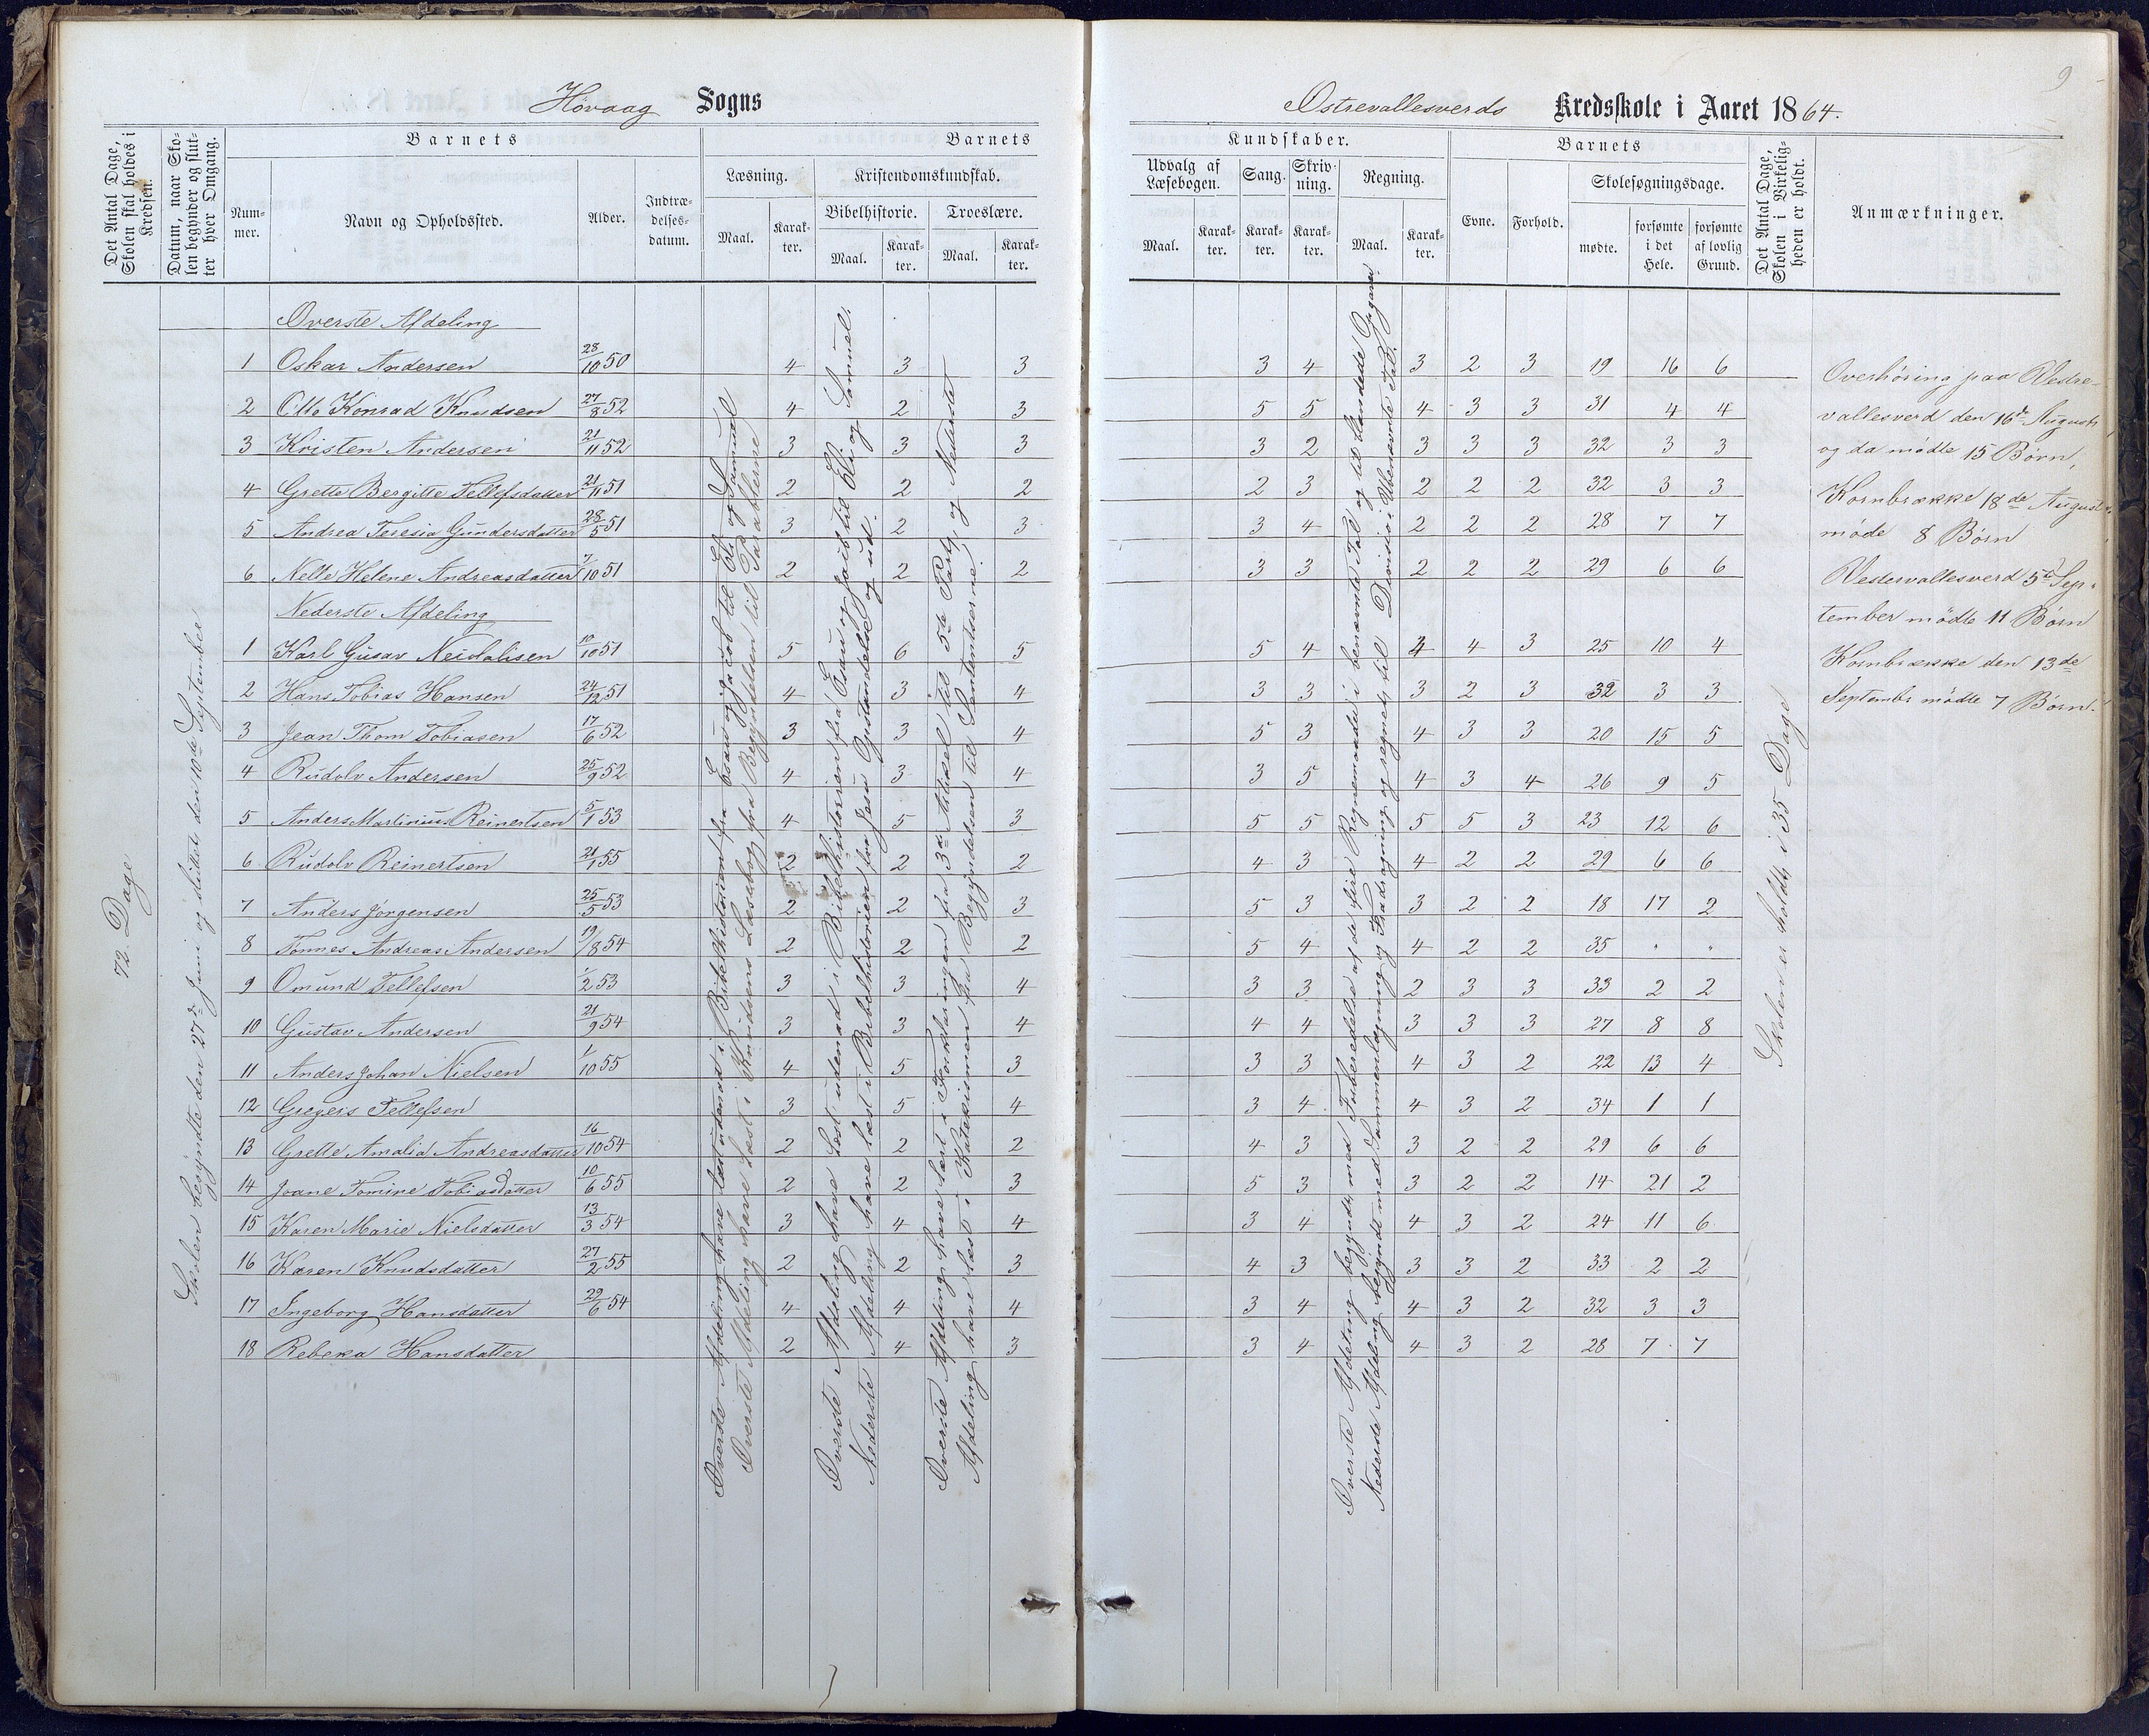 9
Høvaag Sogns
Østrevallesverds Kredsskole i Aaret 1864.
Det Antal Dage, Skolen skal holdes i Kredsen.
Datum, naar Skolen begynder og slutter hver Omgang.
Barnets
Nummer.
Navn og Opholdssted.
Alder.
Indtrædelsesdatum.
Barnets
Læsning.
Maal.
Karakter.
Kristendomskundskab.
Bibelhistorie.
Maal.
Karakter.
Troeslære.
Maal.
Karakter.
Kundskaber.
Udvalg af Læsebogen.
Maal.
Karakter.
Sang.
Karakter.
Skrivning.
Karakter.
Regning.
Maal.
Karakter.
Barnets
Evne.
Forhold.
Skolesøgningsdage.
mødte.
forsømte i det Hele.
forsømte af lovlig Grund.
Det Antal Dage, Skolen i Virkeligheden er holdt.
Anmærkninger.
72 Dage
Skolen begyndte den 27de Juni og sluttet den 10de September
Øverste Afdeling
1 Oskar Andersen 28/10 50 4 3 3 3 4 3 2 3 19 16 6
2 Otto Konrad Knudsen 27/8 52 4 2 3 5 5 4 3 3 31 4 4
3 Kristen Andersen 21/11 52 3 3 3 3 2 3 3 3 32 3 3
4 Grette Bergitte Tellefsdatter 21/11 51 2 2 2 2 3 2 2 2 32 3 3
5 Andrea Teresia Gundersdatter 28/5 51 3 2 3 3 4 2 2 2 28 7 7
6 Nelle Helene Andreasdatter 7/10 51 2 2 2 3 3 2 2 2 29 6 6
Nederste Afdeling
1 Karl Gusav Neidalisen 10/10 51 5 6 5 5 4 4 4 3 25 10 4
2 Hans Tobias Hansen 24/12 51 4 3 4 3 3 3 2 3 32 3 3
3 Jean Thom Tobiasen 17/6 52 3 3 4 5 3 4 3 3 20 15 5
4 Rudolv Andersen 25/9 52 4 3 4 3 5 4 3 4 26 9 5
5 Anders Martinius Reinertsen 5/1 53 4 5 3 5 5 5 5 3 23 12 6
6 Rudolv Reinertsen 21/1 55 2 2 2 4 3 4 2 2 29 6 6
7 Anders Jørgensen 25/5 53 2 2 3 5 3 3 2 2 18 17 2
8 Tønnes Andreas Andersen 19/8 54 2 2 2 5 4 4 2 2 35 " "
9 Omund Tellefsen 1/2 53 3 3 4 3 3 2 3 3 33 2 2
10 Gustav Andersen 21/9 54 3 3 4 4 4 3 3 3 27 8 8
11 Anders Johan Nielsen 1/10 55 4 5 3 3 3 4 3 2 22 13 4
12 Gregers Tellefsen 3 5 4 3 4 4 3 2 34 1 1
13 Grette Amalia Andreasdatter 16/10 54 2 2 2 4 3 3 2 2 29 6 6
14 Joane Tomine Tobiasdatter 10/6 55 2 2 3 5 3 3 2 2 14 21 2
15 Karen Marie Nielsdatter 13/3 54 3 4 4 3 4 4 3 2 24 11 6
16 Karen Knudsdatter 27/2 55 2 2 3 4 3 3 3 2 33 2 2
17 Ingeborg Hansdatter 29/6 54 4 4 4 3 4 4 3 2 32 3 3
18 Rebeka Hansdatter 2 4 3 3 4 4 3 2 28 7 7
Øverste Afdeling have læst udenad i Bibelhistorien fra Esau og Jacob til Eli og Samuel
Øverste Afdeling have læst i Knudsens Læsebog fra Begyndelsen til Parablerne
Øverste Afdeling have læst udenad i Bibelhistorien fra Esau og Jacob til Eli og Samuel.
Nederste Afdeling have læst i Bibelhistorien fra Jesu Opstandelse og ud.
Øverste Afdeling have læst i Forklaringen fra 3die Artikel til 5te Part, og Nederste
Afdeling have læst i Katekismen fra Begyndelsen til Sententserne.
Øverste Afdeling begyndt med Fuberedelse af de fire Regnemaader i benævnte Tal og til blandede
Nederste Afdeling begyndt med Sammenlægning og Fradragning og regnet til Division i Ubenævnte Tal.
Skolen er holdt i 35 Dage
Overhøring paa Vestre-
vallesverd den 16de August,
og da mødte 15 Børn,
Kornbrække 18de August.
møde 8 Børn
Vestervallesverd 5te Sep-
tember mødte 11 Børn
Kornbrække den 13de
Septembr mødte 7 Børn.